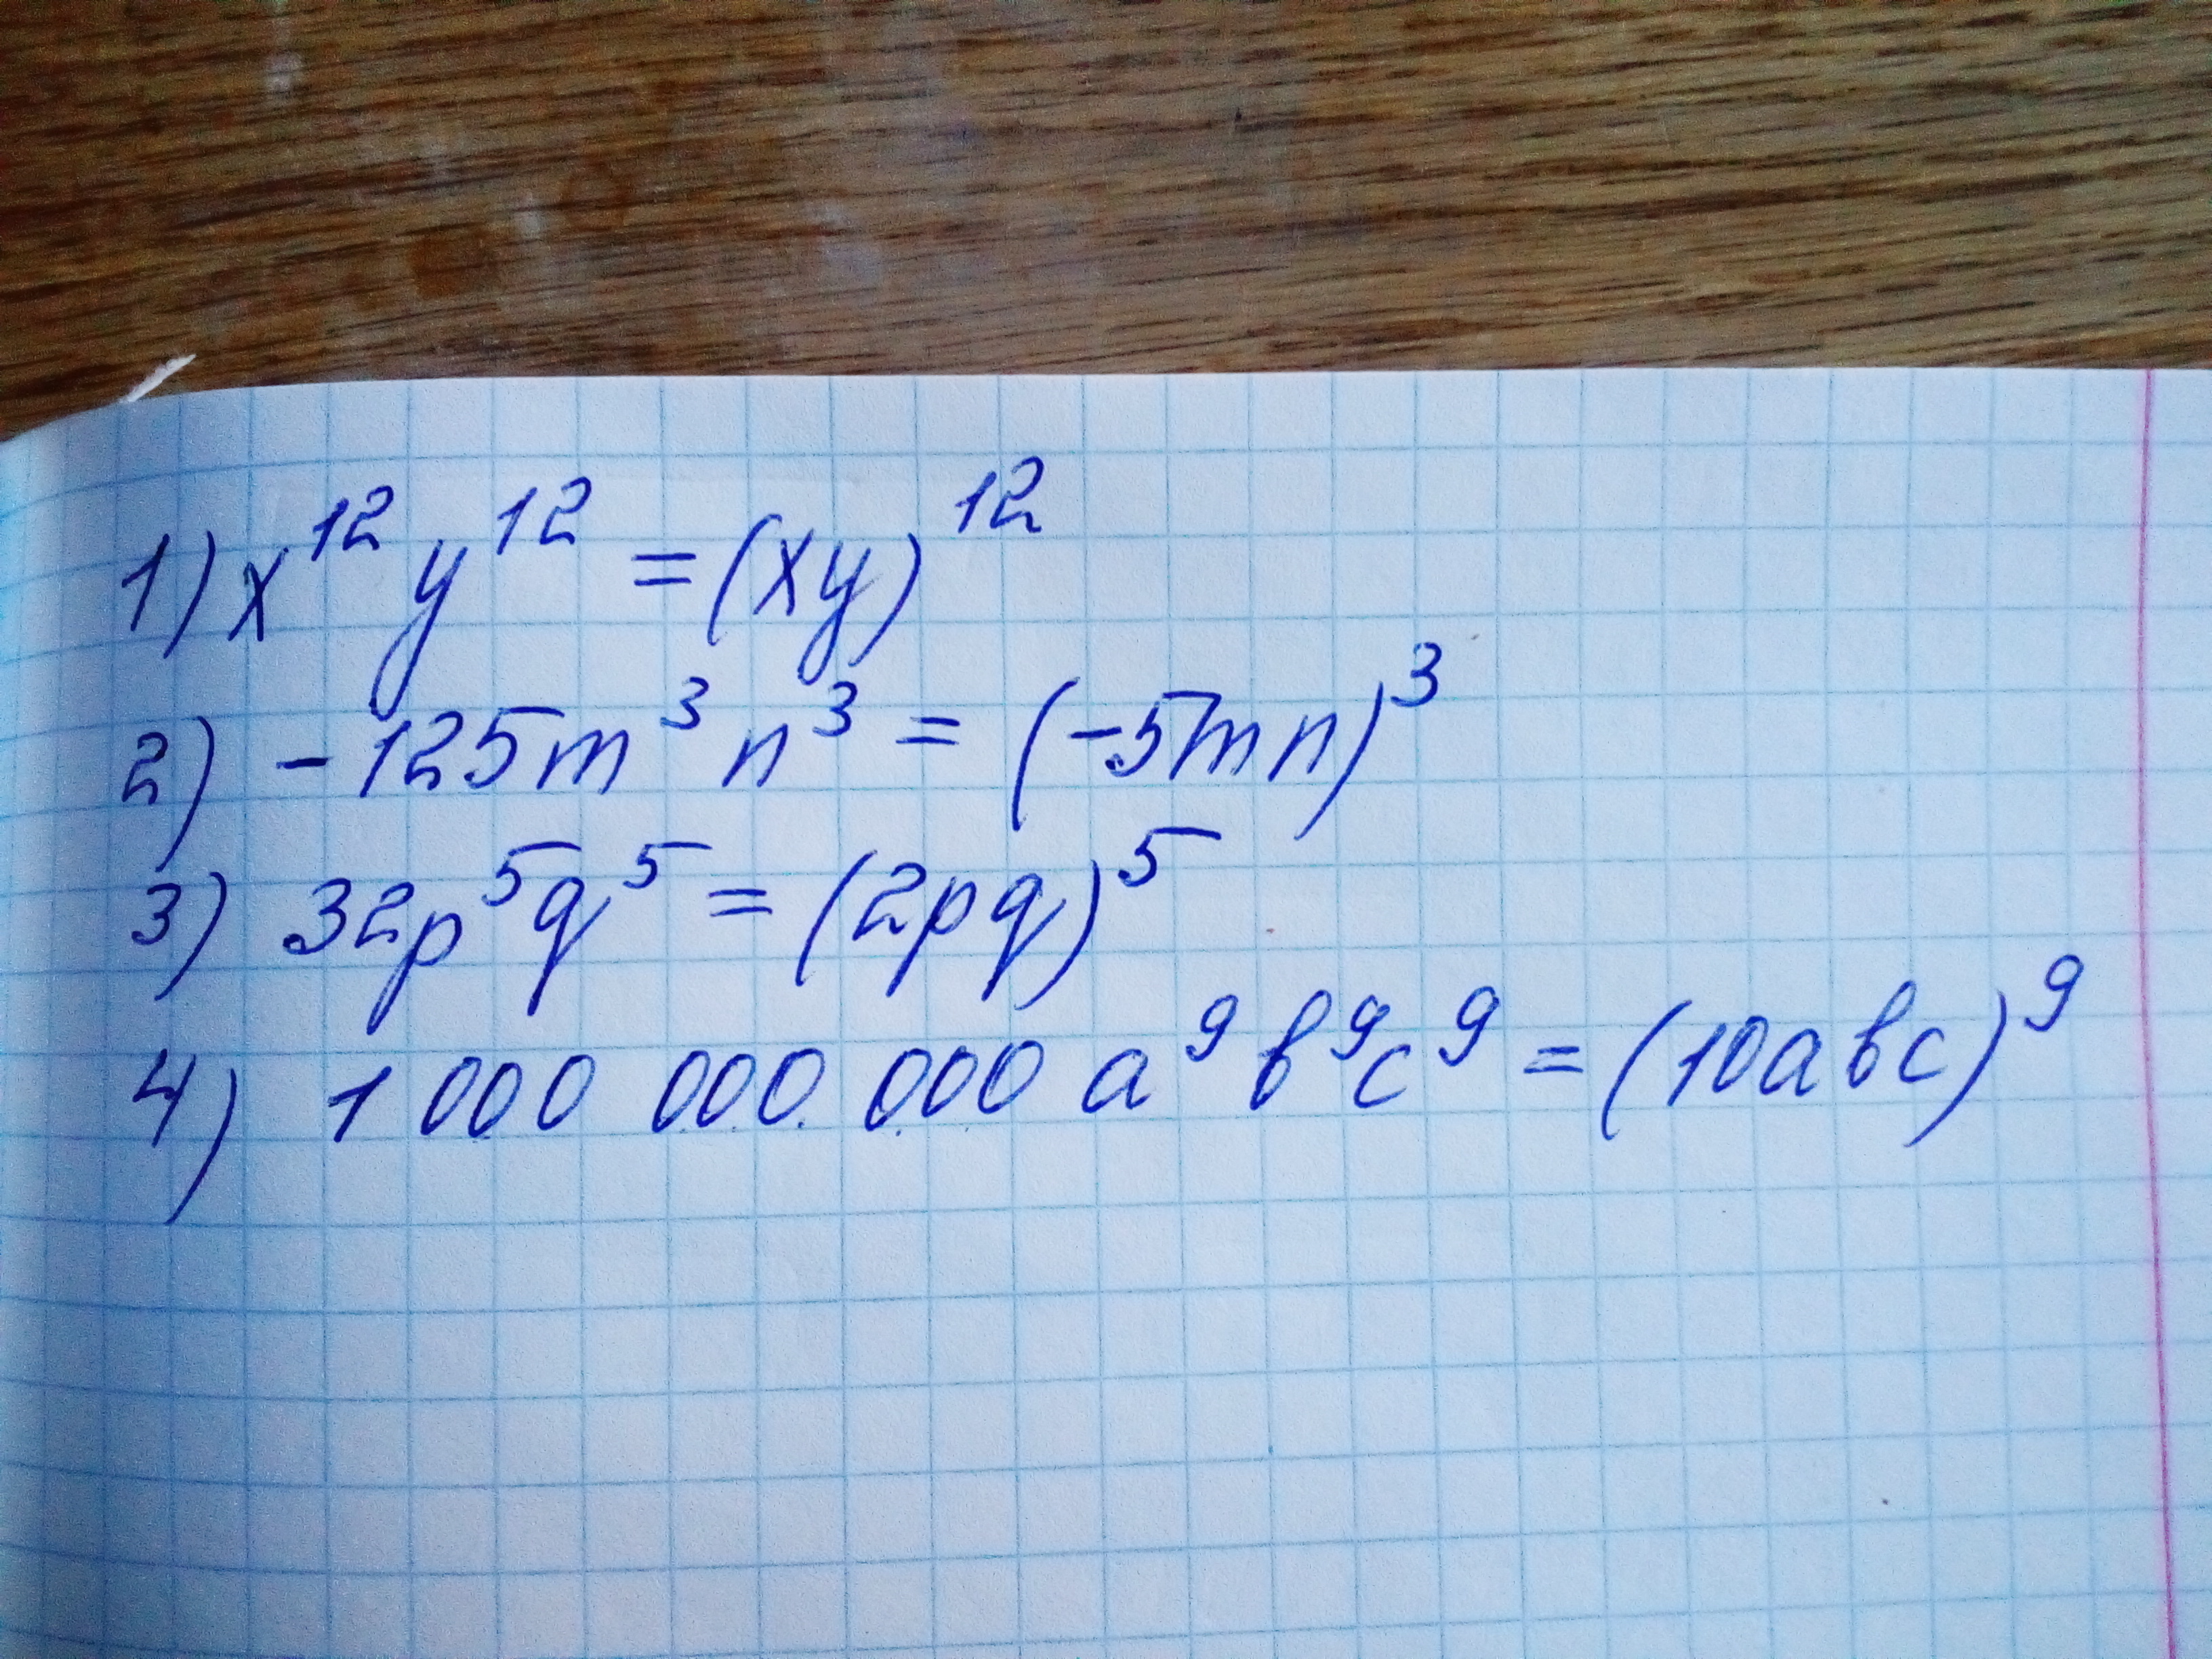 1) x¹² y¹² = (xy)¹²
2) - 125m³ n³ = (-5mn)³
3) 32p⁵q⁵ = (2pq)⁵
4) 1 000 000 000 a⁹ b⁹c⁹ = (10abc)⁹